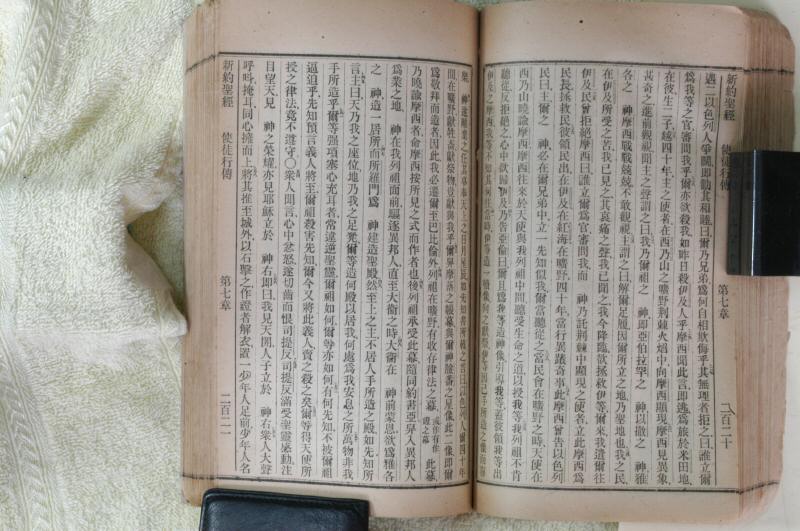 新約聖經 使徒行傳 第七章 二百二十
遇二以色列人爭鬭卽勸其和睦曰爾乃兄弟爲何自相欺侮乎其無理者拒之曰誰立爾
爲我等之官審問我乎爾亦欲殺我如昨日殺伊及人乎摩西聞此言卽逃爲旅於米田地
在彼生二子越四十年主之使者在西乃山之曠野荆棘火熖中向摩西顯現摩西見異象
甚奇之進前觀視聞主之聲謂之曰我乃爾祖之 神卽亞伯拉罕之 神以撒之 神雅
各之 神摩西戰戰兢兢不敢觀視主謂之曰解爾足履因爾所立之地乃聖地也我之民
在伊及所受之苦我已見之其哀痛之聲我已聞之我今降臨欲拯救伊等爾來我遣爾往
伊及民曾拒絕摩西曰誰立爾爲官審問我而 神乃託荆棘中顯現之使者立此摩西爲
民長拯救民彼領民出在伊及在紅海在曠野四十年當行異蹟奇事此摩西曾告以色列
民曰主爾之 神必在爾兄弟中立一先知似我爾當聽從之當民會在曠野之時天使在
西乃山曉諭摩西摩西往來於天使與我列祖中間聽受生命之道以授我等我列祖不肯
聽從反拒絕之心中欲歸伊及乃告亞倫曰爾且爲我等造神像引導我等蓋彼領我等出
間在曠野獻牲畜獻祭物豈獻與我乎爾舁摩落之幔幕與爾神臉番之星像此二像卽爾
爲敬拜而造者因此我必遷爾至巴比倫外列祖在曠野有收存律法之幕 此幕
乃曉諭摩西者命摩西按所見之式而作者也後列祖承受此幕隨同約書亞舁入異邦人
爲業之地 神在我列祖面前驅逐異邦人直至大衞之時大衞在 神前蒙恩欲爲雅各
之 神造一居所而所羅門爲 神建造聖殿然至上之主不居人手所造之殿如先知所
言主曰天乃我之座位地乃我之足凳爾等造何殿以居我何處爲我安息之所萬物非我
手所造乎爾等强項塞心充耳者常違逆聖靈爾祖如何爾等亦如何有何先知不被爾祖
逼迫乎先知預言義人將至爾祖殺害先知爾今又將此義人賣之殺之矣爾等得天使所
授之律法竟不遵守〇衆人聞言心中忿怒遂切齒而恨司提反司提反滿受聖靈感動注
目望天見 神之榮耀亦見耶穌立於 神右卽曰我見天開人子立於 神右衆人大聲
呼呌掩耳同心擁而上將其推至城外以石擊之作證者解衣置一少年人足前少年人名
新約聖經 使徒行傳 第七章 二百二一